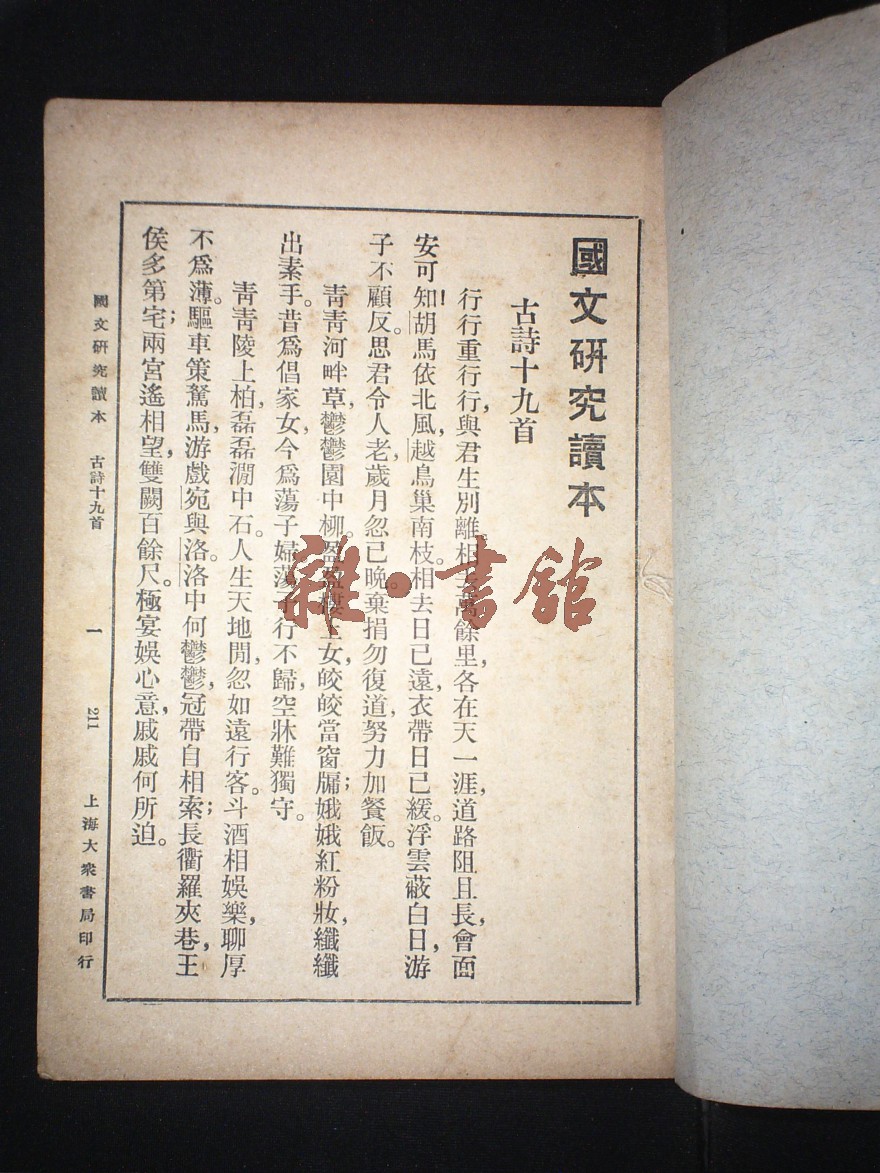 國文研究讀本
古詩十九首
行行重行行,與君生別離。相去萬餘里,各在天一涯,道路阻且長,會面
安可知!胡馬依北風,越鳥巢南枝。相去日已遠,衣帶日已緩。浮雲蔽白日,游
子不顧反。思君令人老,歲月忽已晚。棄捐勿復道,努力加餐飯。
靑靑河畔草,鬱鬱園中柳。盈盈樓上女,皎皎當窗牖;娥娥紅粉妝,纖纖
出素手。昔爲倡家女,今爲蕩子婦。蕩子行不歸,空牀難獨守。
靑靑陵上柏,磊磊澗中石。人生天地閒,忽如遠行客。斗酒相娛樂,聊厚
不爲薄。驅車策駑馬,游戲宛與洛。洛中何鬱鬱,冠帶自相索;長衢羅夾巷,王
侯多第宅;兩宮遙相望,雙闕百餘尺。極宴娛心意,戚戚何所迫。
國文研究讀本 古詩十九首 一 211 上海大衆書局印行
雜·書館